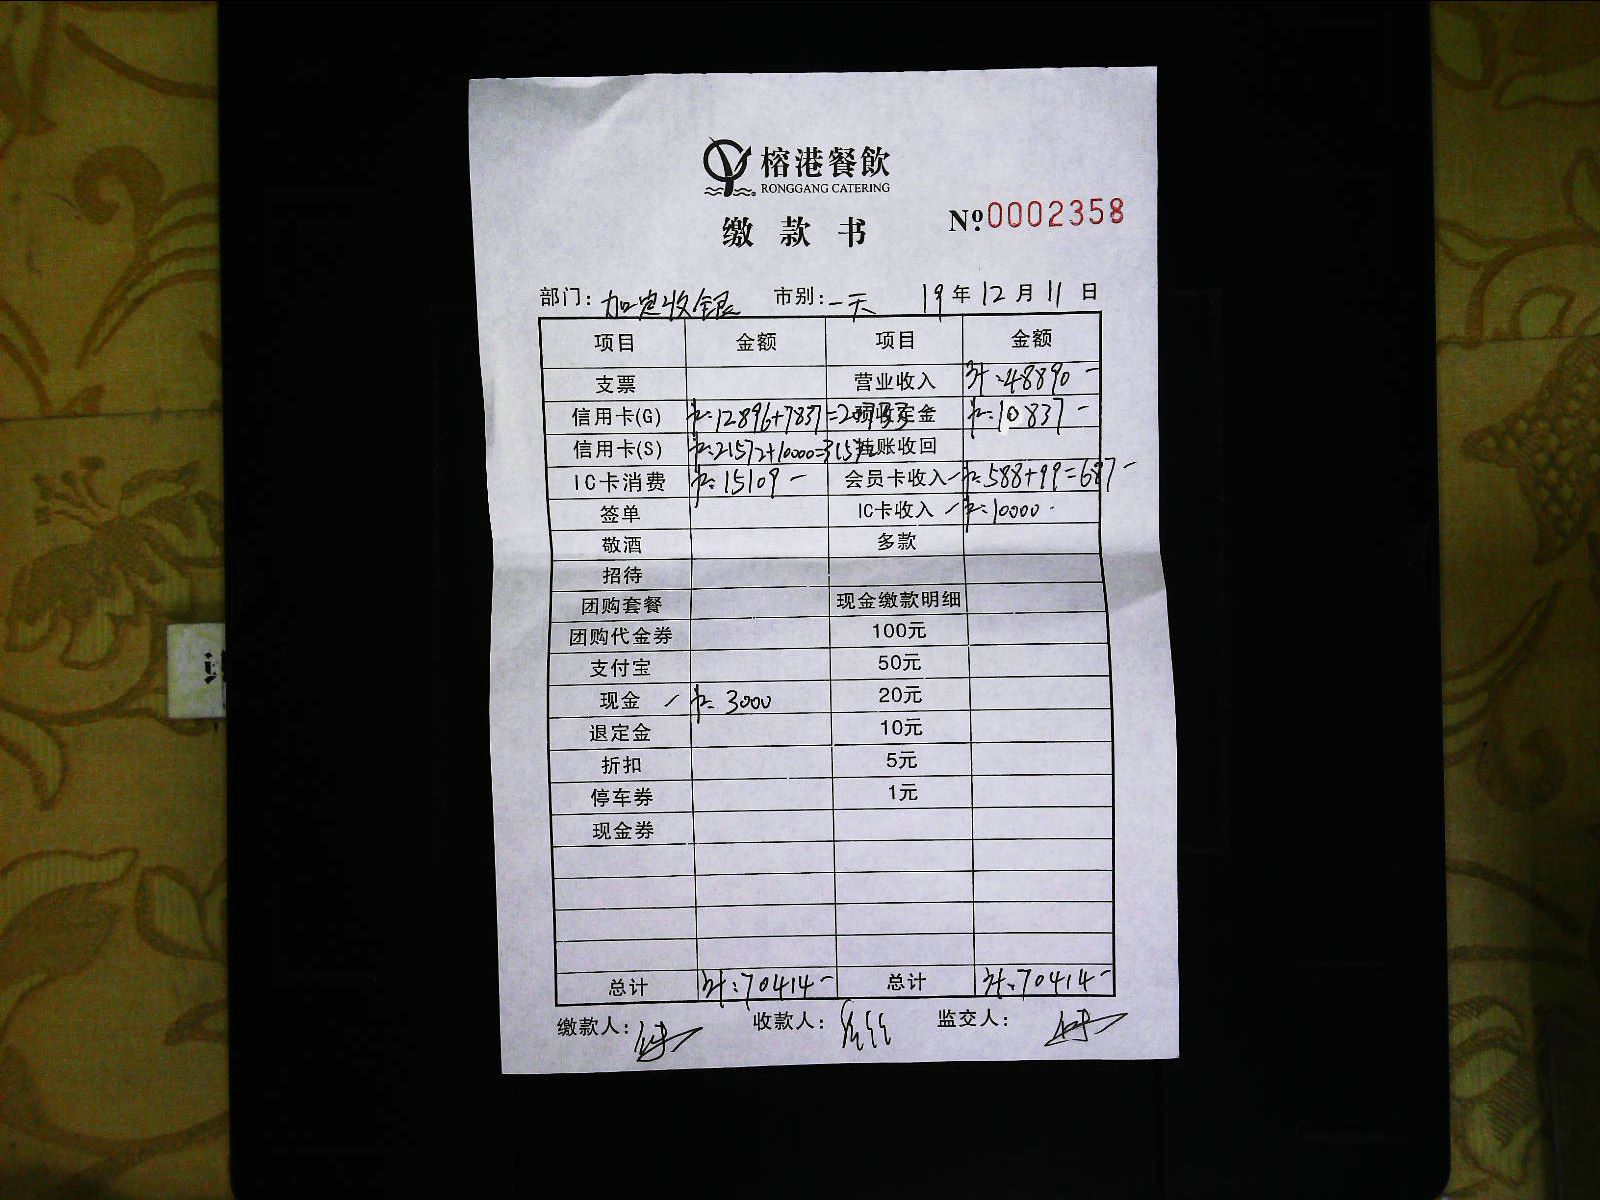 榕港餐飲
RONGGANG CATERING
缴款书 No 0002358
部门: 加定收银 市别: 一天 19年12月11日
项目 金额 项目 金额
支票 营业收入 计:48890-
信用卡(G) 12896+7837=20733 预收定金 10837-
信用卡(S) 21572+10000=31572 挂账收回
IC卡消费 15109- 会员卡收入 588+99=687-
签单 IC卡收入 10000-
敬酒 多款
招待
团购套餐 现金缴款明细
团购代金券 100元
支付宝 50元
现金 3000 20元
退定金 10元
折扣 5元
停车券 1元
现金券
总计 计:70414- 总计 计:70414-
缴款人: 收款人: 监交人: